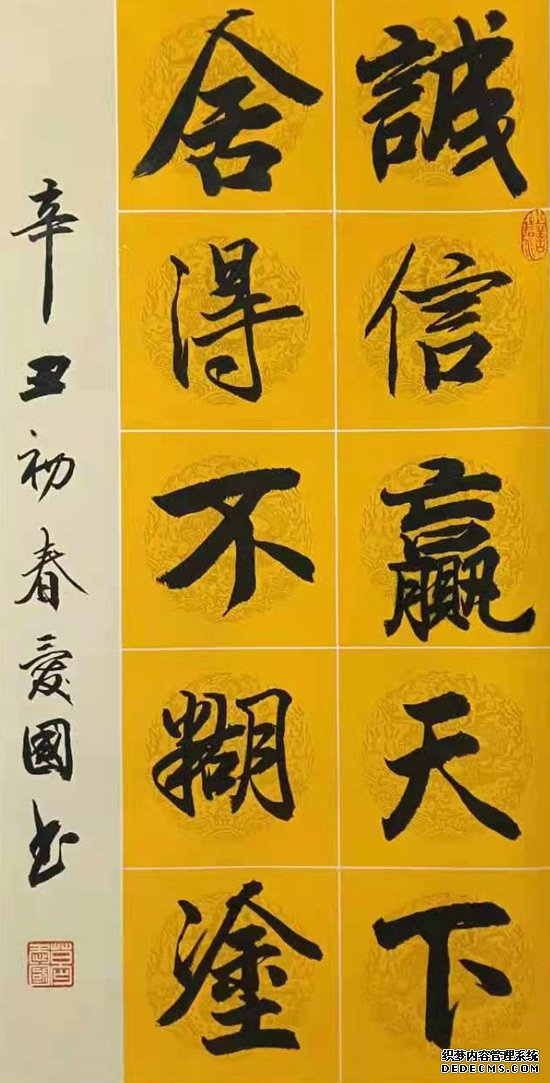 誠信贏天下
舍得不糊塗
辛丑初春爱國书
织梦内容管理系统
DEDECMS.COM